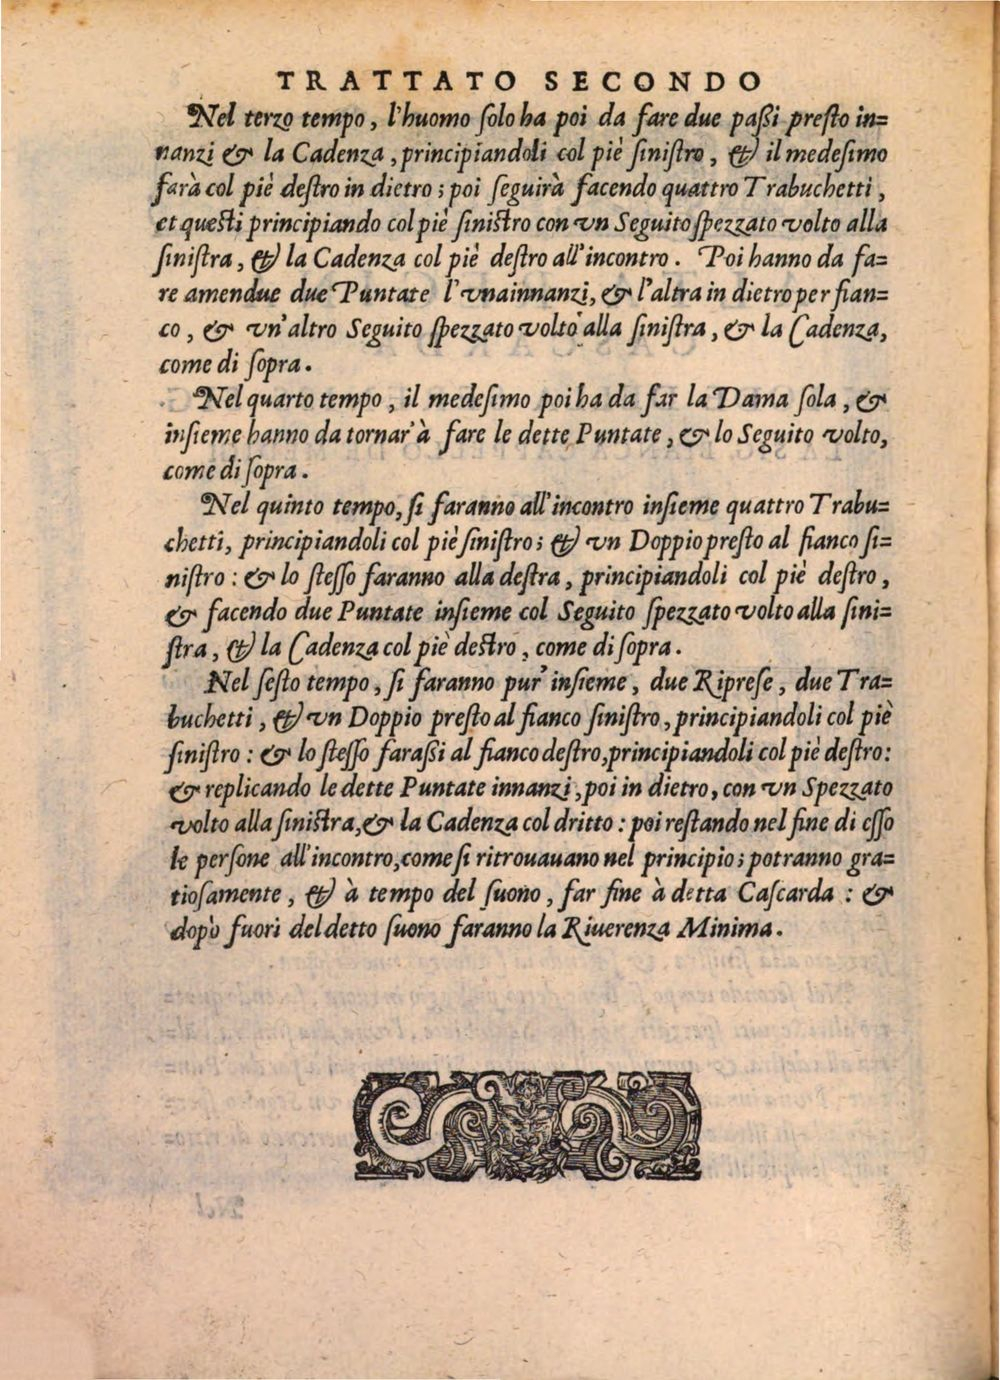 TRATTATO SECONDO
Nel terzo tempo, l'huomo ſolo ha poi da fare due paßi preſto in=
nanzi & la Cadenza, principiandoli col piè ſiniſtro, & il medeſimo
farà col piè deſtro in dietro; poi ſeguirà facendo quattro Trabuchetti,
et queſti principiando col piè ſiniſtro con vn Seguito ſpezzato volto alla
ſiniſtra, & la Cadenza col piè deſtro all'incontro. Poi hanno da fa=
re amendue due Puntate l'vna innanzi, & l'altra in dietro per fian=
co, & vn'altro Seguito ſpezzato volto alla ſiniſtra, & la Cadenza,
come di ſopra.
Nel quarto tempo, il medeſimo poi ha da far la Dama ſola, &
inſieme hanno da tornar'à fare le dette Puntate, & lo Seguito volto,
come di ſopra.
Nel quinto tempo, ſi faranno all'incontro inſieme quattro Trabu=
chetti, principiandoli col piè ſiniſtro; & vn Doppio preſto al fianco ſi=
niſtro: & lo ſteſſo faranno alla deſtra, principiandoli col piè deſtro,
& facendo due Puntate inſieme col Seguito ſpezzato volto alla ſini=
ſtra, & la Cadenza col piè deſtro, come di ſopra.
Nel ſeſto tempo, ſi faranno pur'inſieme, due Ripreſe, due Tra=
buchetti, & vn Doppio preſto al fianco ſiniſtro, principiandoli col piè
ſiniſtro: & lo ſteſſo faraßi al fianco deſtro, principiandoli col piè deſtro:
& replicando le dette Puntate innanzi, poi in dietro, con vn Spezzato
volto alla ſiniſtra, & la Cadenza col dritto: poi reſtando nel fine di eſſo
le perſone all'incontro, come ſi ritrouauano nel principio; potranno gra=
tioſamente, & à tempo del ſuono, far fine à detta Caſcarda: &
dopò fuori del detto ſuono faranno la Riuerenza Minima.